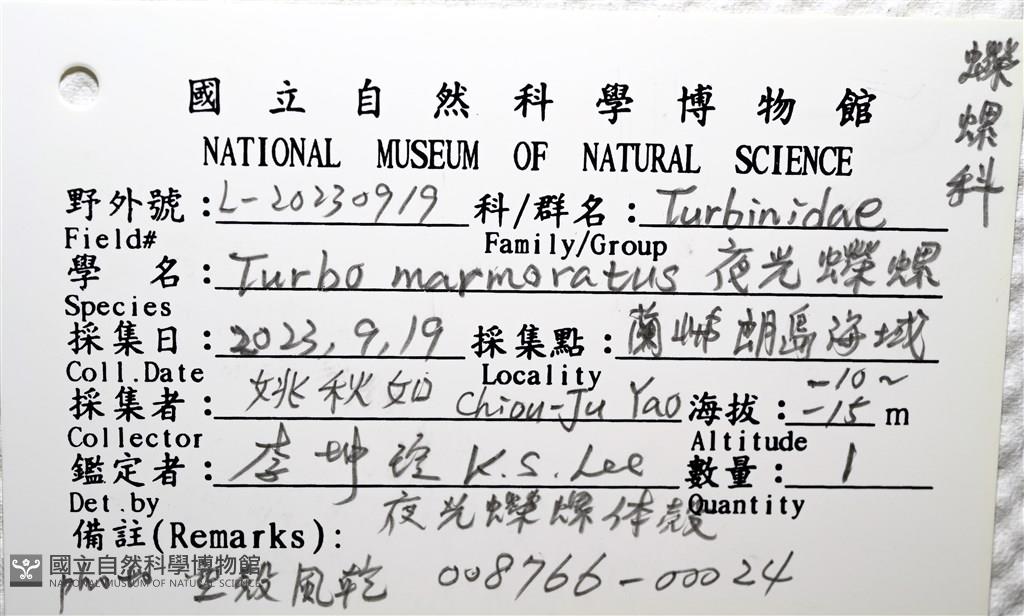 蠑螺科
國立自然科學博物館
NATIONAL MUSEUM OF NATURAL SCIENCE
野外號:L-20230919 科/群名:Turbinidae
Field# Family/Group
學名:Turbo marmoratus 夜光蠑螺
Species
採集日:2023,9,19 採集點:蘭嶼朗島海域
Coll.Date Locality
採集者:姚秋如 Chiou-Ju Yao 海拔:-10~-15 m
Collector Altitude
鑑定者:李坤瑄 K.S.Lee 數量:1
Det.by Quantity
備註(Remarks): 夜光蠑螺体殼
空殼風乾 008766-00024
國立自然科學博物館
NATIONAL MUSEUM OF NATURAL SCIENCE